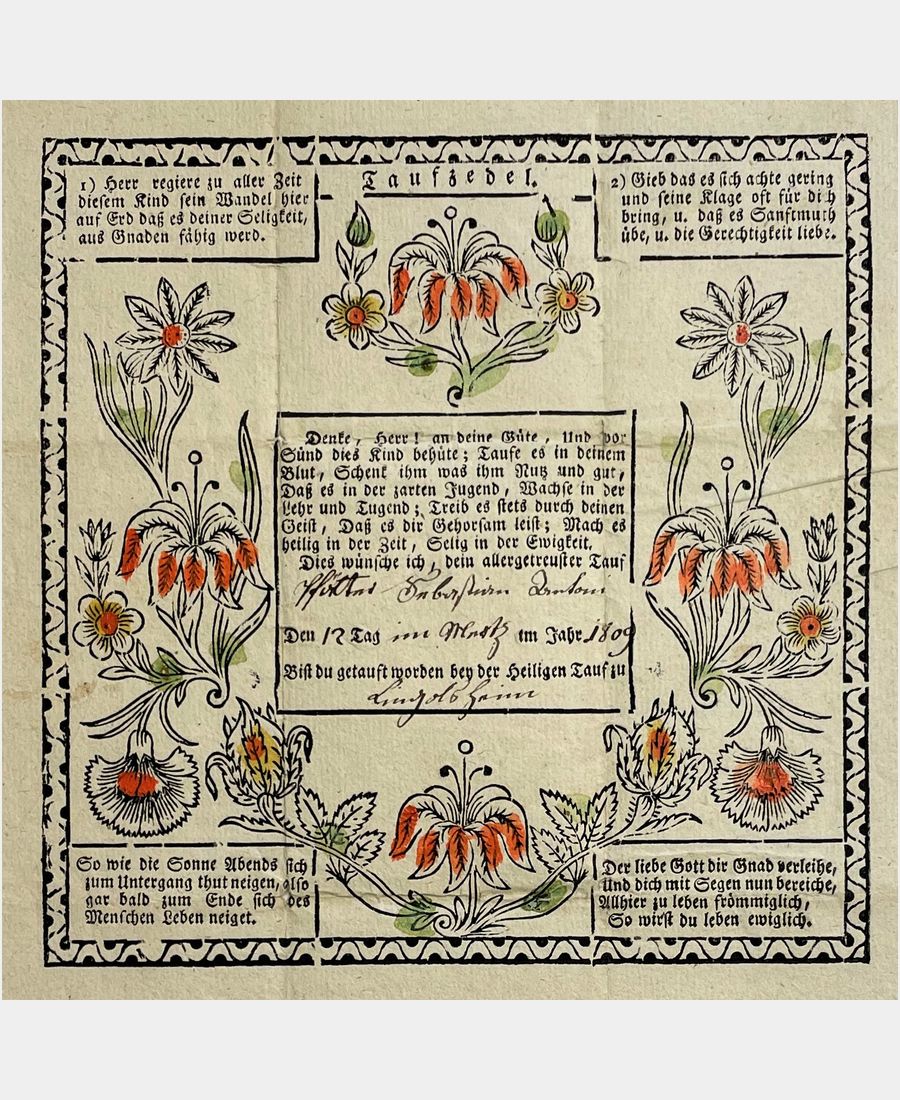 Taufzedel.
1) Herr regiere zu aller Zeit
diesem Kind sein Wandel hier
auf Erd daß es deiner Seligkeit,
aus Gnaden fähig werd.
2) Gieb das es sich achte gering
und seine Klage oft für dich
bring, u. daß es Sanftmuth
übe, u. die Gerechtigkeit liebe.
Denke, Herr! an deine Güte, Und vor
Sünd dies Kind behüte; Taufe es in deinem
Blut, Schenk ihm was ihm Nutz und gut,
Daß es in der zarten Jugend, Wachse in der
Lehr und Tugend; Treib es stets durch deinen
Geist, Daß es dir Gehorsam leist; Mach es
heilig in der Zeit, Selig in der Ewigkeit,
Dies wünsche ich, dein allergetreuster Tauf
Pfätter Sebastian Antoni
Den 12 Tag im Mertz im Jahr 1809
Bist du getauft worden bey der Heiligen Tauf zu
Lingolsheim
So wie die Sonne Abends sich
zum Untergang thut neigen, also
gar bald zum Ende sich des
Menschen Leben neiget.
Der liebe Gott dir Gnad verleihe,
Und dich mit Segen nun bereiche,
Allhier zu leben frömmiglich,
So wirst du leben ewiglich.